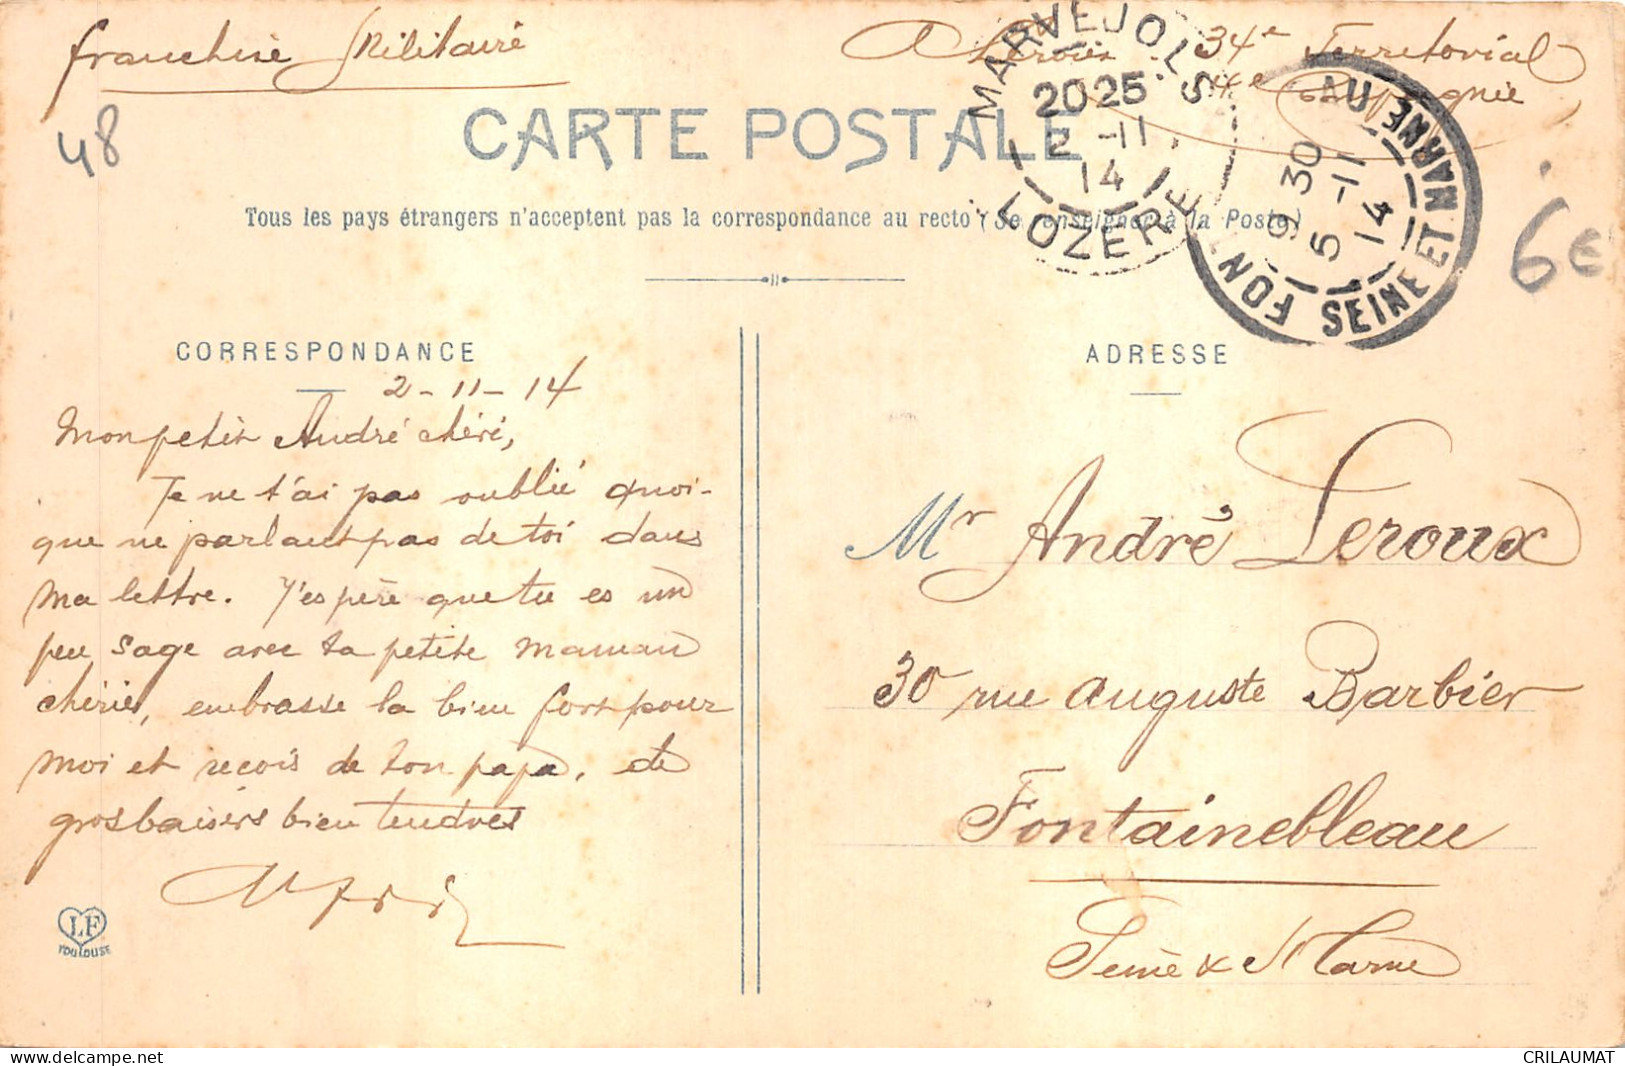 franchise Militaire
A Leroux 34e Territorial
IXe Compagnie
48
CARTE POSTALE
MARVEJOLS
2025
2 -11
14
LOZERE
9 30
5 -11
14
FON AU
SEINE ET MARNE
Tous les pays étrangers n'acceptent pas la correspondance au recto (Se renseigner à la Poste)
6 €
CORRESPONDANCE
ADRESSE
2-11-14
Mon petit André chéri,
Je ne t'ai pas oublié quoi-
que ne parlant pas de toi dans
ma lettre. J'espère que tu es un
peu sage avec ta petite maman
chérie, embrasse la bien fort pour
moi et reçois de ton papa, de
gros baisers bien tendres
LF
TOULOUSE
Mr André Leroux
30 rue Auguste Barbier
Fontainebleau
Seine & Marne
CRILAUMAT
https://www.delcampe.net